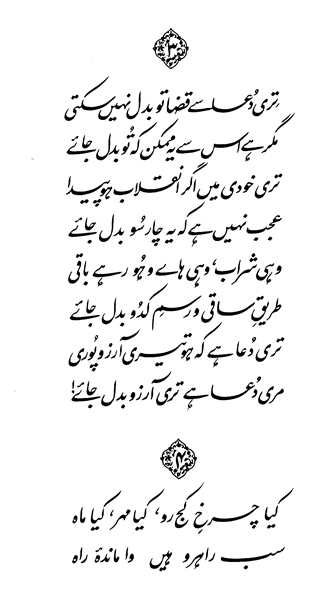 ۳
تِری دُعا سے قضا تو بدل نہیں سکتی
مگر ہے اس سے یہ ممکن کہ تُو بدل جائے
تری خودی میں اگر انقلاب ہو پیدا
عجب نہیں ہے کہ یہ چار سُو بدل جائے
وہی شراب، وہی ہاے و ہُو رہے باقی
طریقِ ساقی و رسمِ کدُو بدل جائے
تری دُعا ہے کہ ہو تیری آرزو پُوری
مری دُعا ہے تری آرزو بدل جائے!
۴
کیا چرخِ کج رو، کیا مہر، کیا ماہ
سب راہرو ہیں واماندۂ راہ